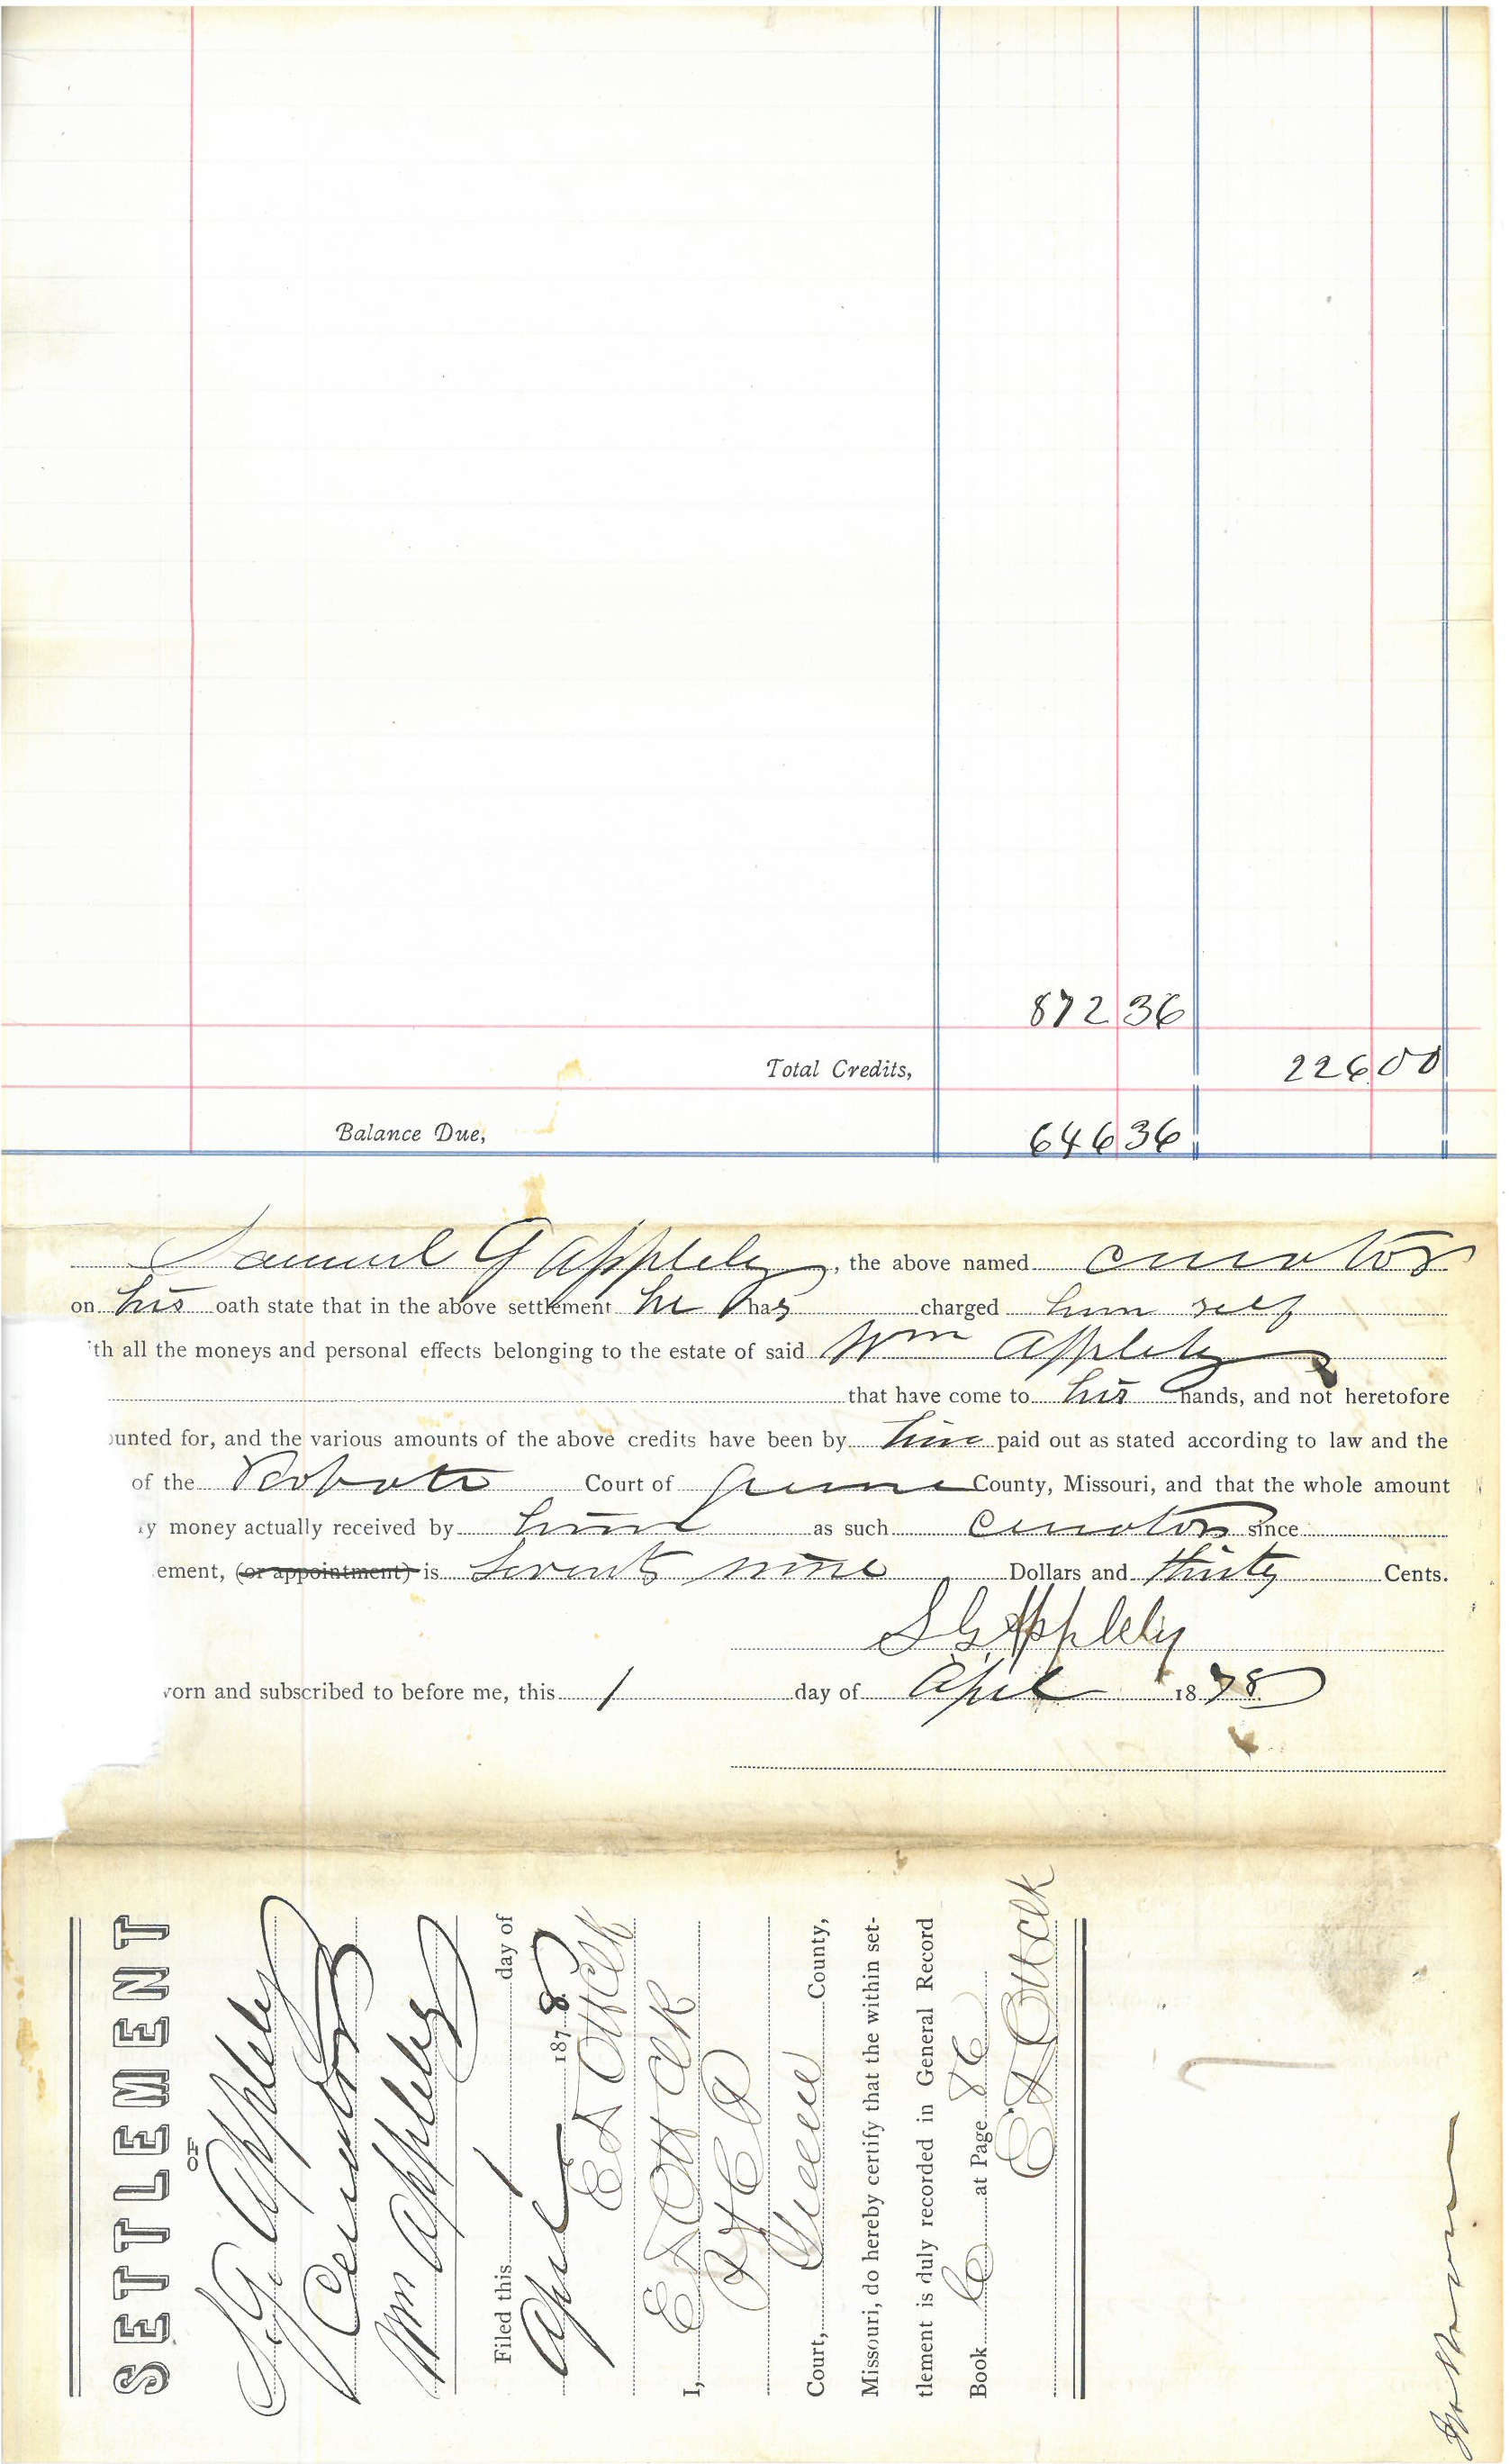 872 36
Total Credits, 226 00
Balance Due, 646 36
Samuel G Appleby, the above named curator
on his oath state that in the above settlement he has charged him self
ith all the moneys and personal effects belonging to the estate of said Wm Appleby
that have come to his hands, and not heretofore
ounted for, and the various amounts of the above credits have been by him paid out as stated according to law and the
of the Probate Court of Greene County, Missouri, and that the whole amount
y money actually received by him as such Curator since
ement, (or appointment) is Seventy nine Dollars and thirty Cents.
S G Appleby
vorn and subscribed to before me, this 1 day of April 1878
SETTLEMENT
OF
S. G. Appleby
Curator
Wm Appleby
Filed this 1 day of
April 1878
E A Ott Clk
I, E A Ott Clk
Court, Greene County,
Missouri, do hereby certify that the within set-
tlement is duly recorded in General Record
Book C at Page 86
E A Ott Clk